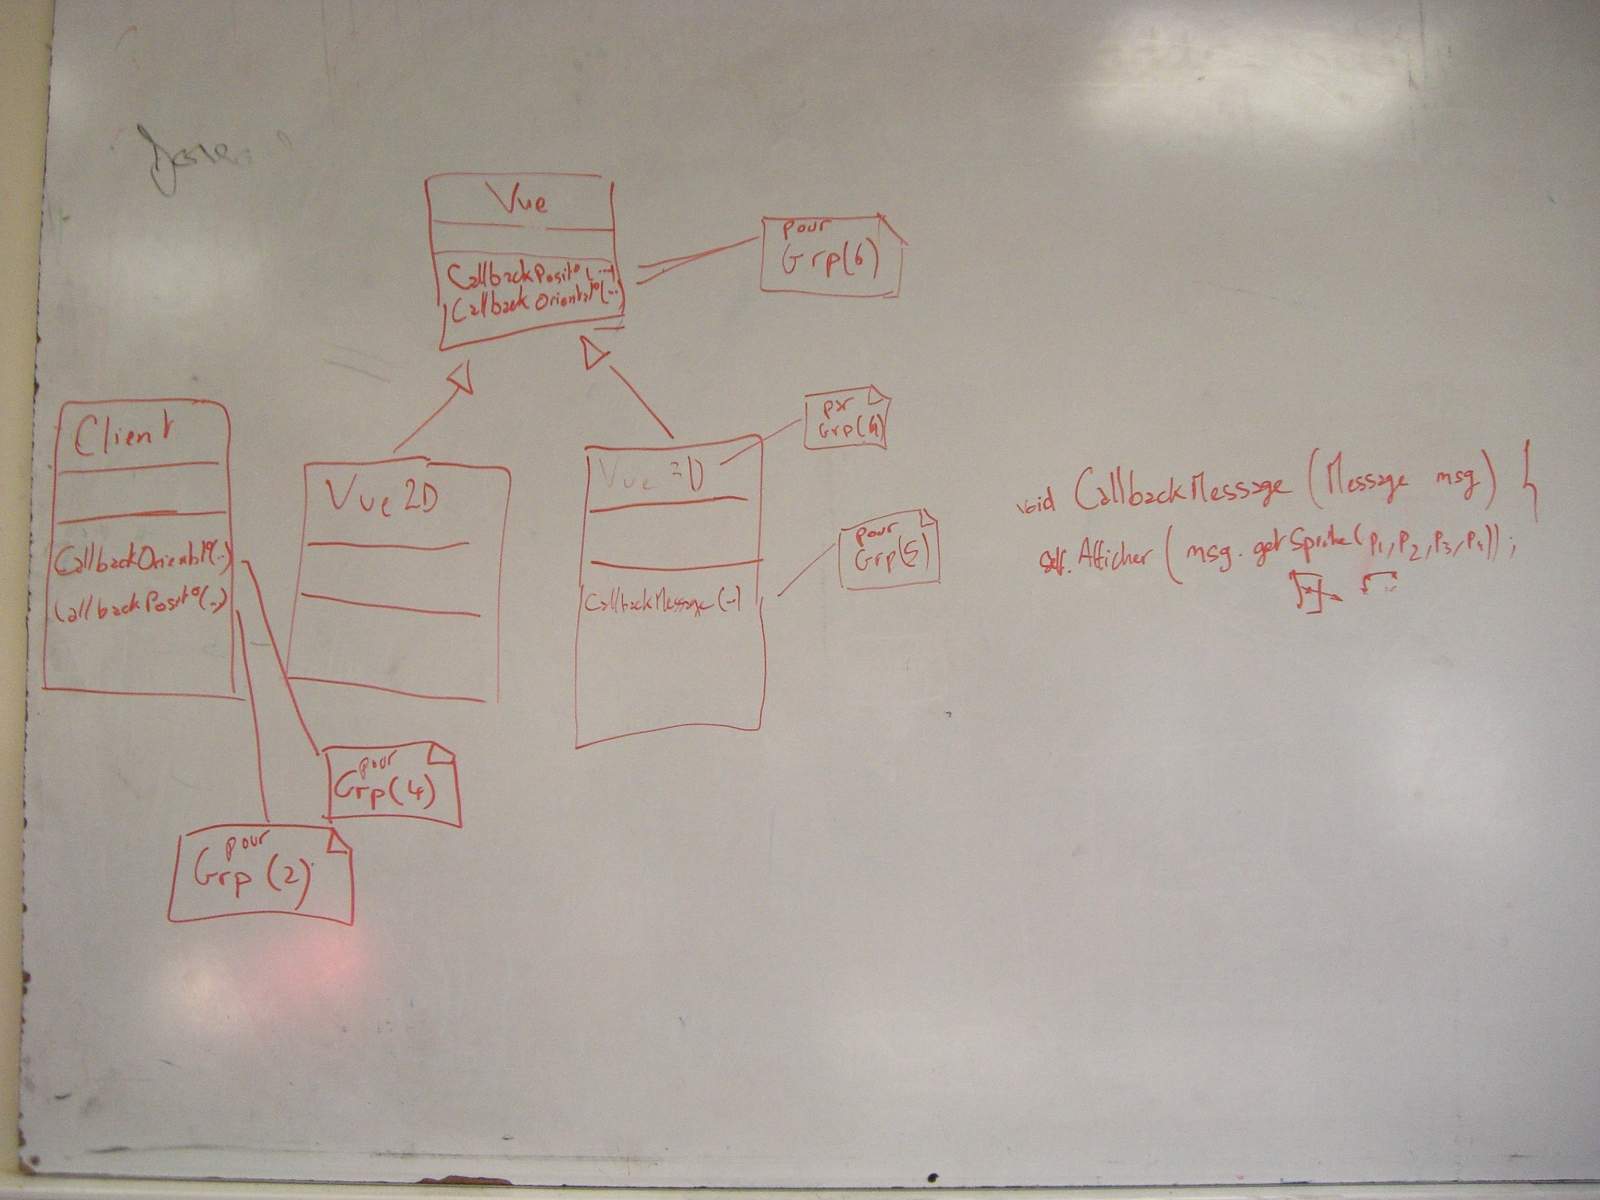 Vue
CallbackPosit°(...)
CallbackOrientat°(...)
pour
Grp(6)
Client
CallbackOrientat°(..)
CallbackPosit°(..)
Vue2D
Vue 3D
CallbackMessage(..)
par
Grp(4)
pour
Grp(5)
pour
Grp(4)
pour
Grp(2)
void CallbackMessage (Message msg) {
self.Afficher ( msg.getSprite(P1, P2, P3, P4));